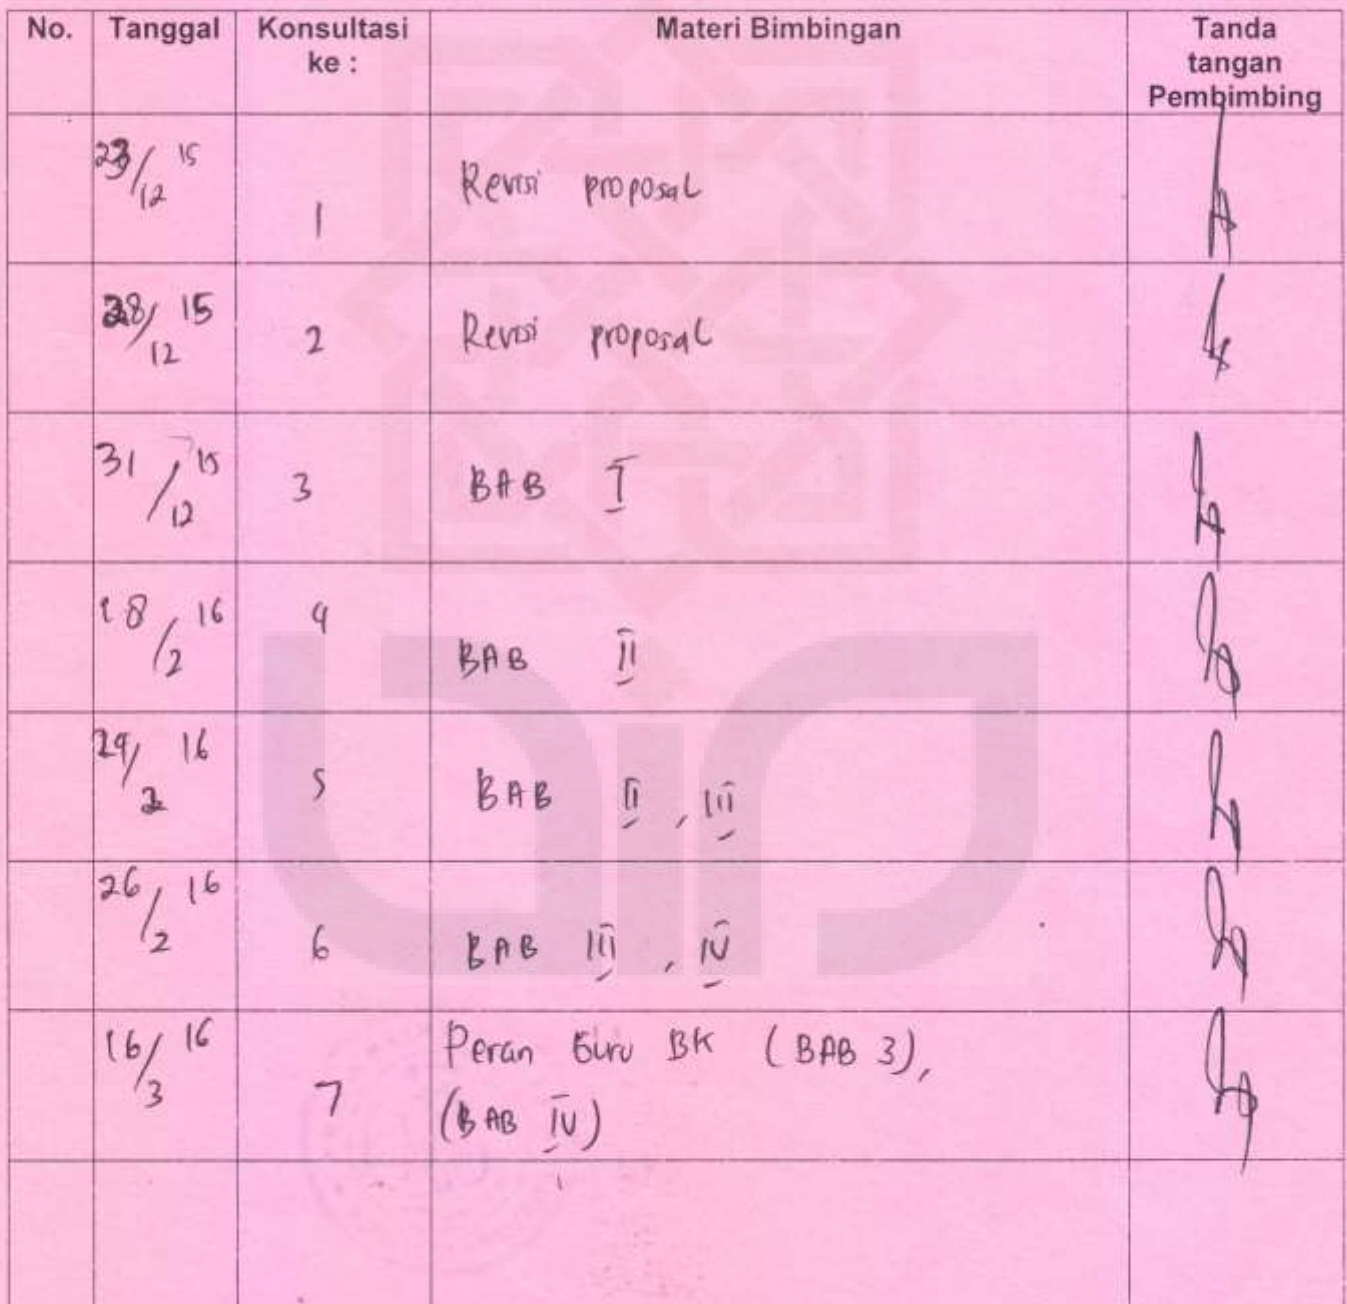 No. Tanggal Konsultasi ke : Materi Bimbingan Tanda tangan Pembimbing
23/12 15 1 Revisi proposal
28/12 15 2 Revisi proposal
31/12 15 3 BAB I
18/2 16 4 BAB II
24/2 16 5 BAB II, III
26/2 16 6 BAB III, IV
16/3 16 7 Peran Guru BK (BAB 3),
(BAB IV)